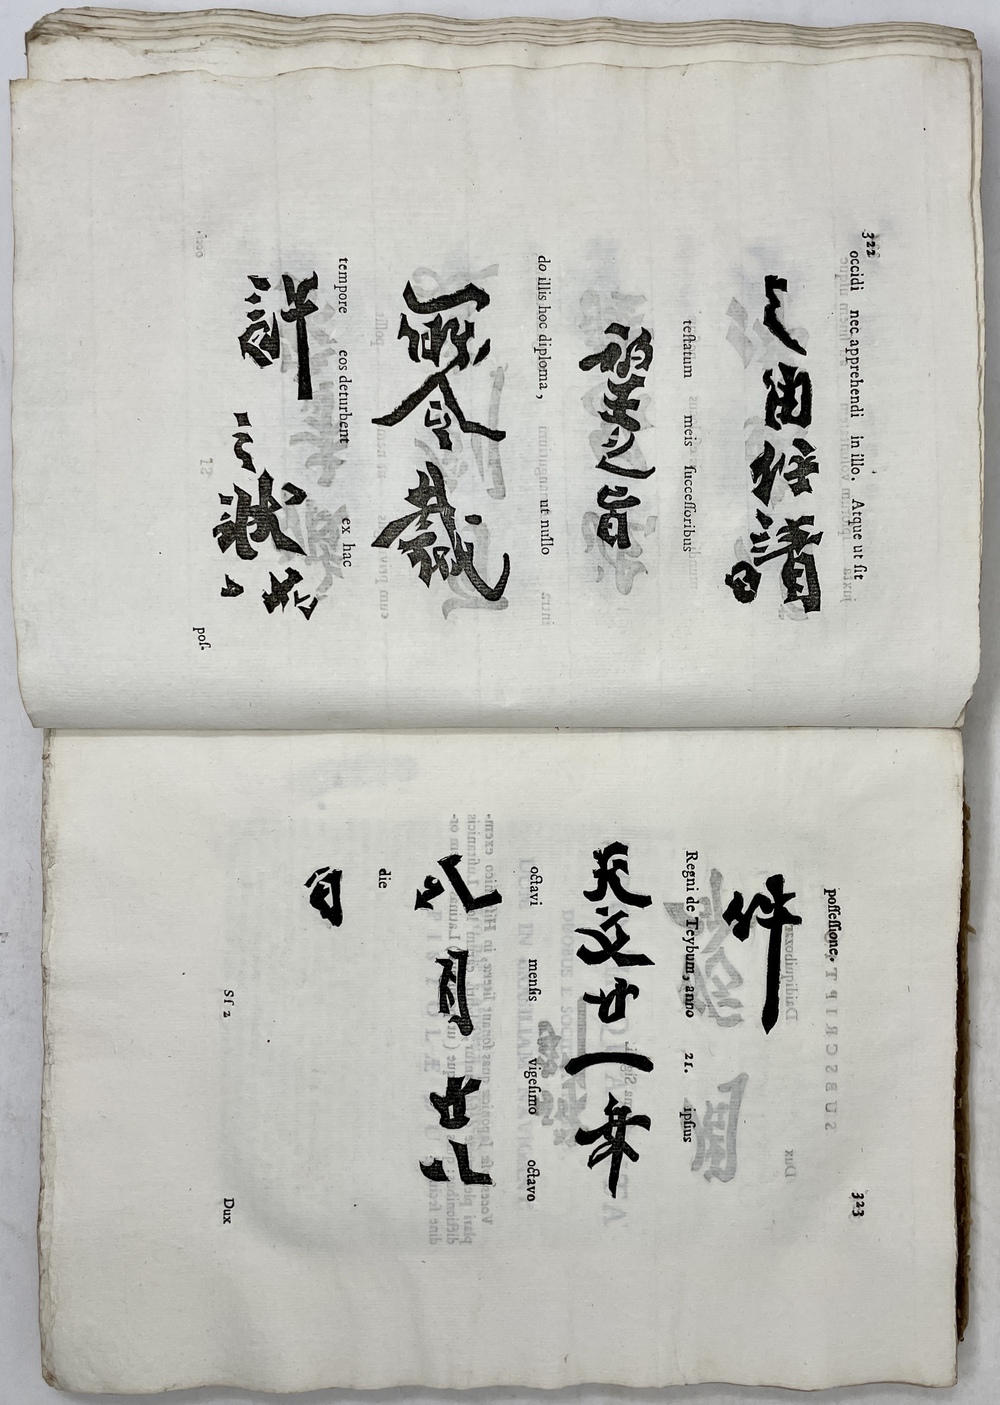 322
occidi nec apprehendi in illo. Atque ut ſit
之由任請
teſtatum meis ſucceſſoribus
望之旨
do illis hoc diploma, ut nullo
所令裁
tempore eos deturbent ex hac
許之狀如
poſ-
323
poſſeſſione.
件
Regni de Teybum, anno 21. ipſius
天文廿一年
octavi menſis vigeſimo octavo
八月廿八
die
日
Sſ 2 Dux